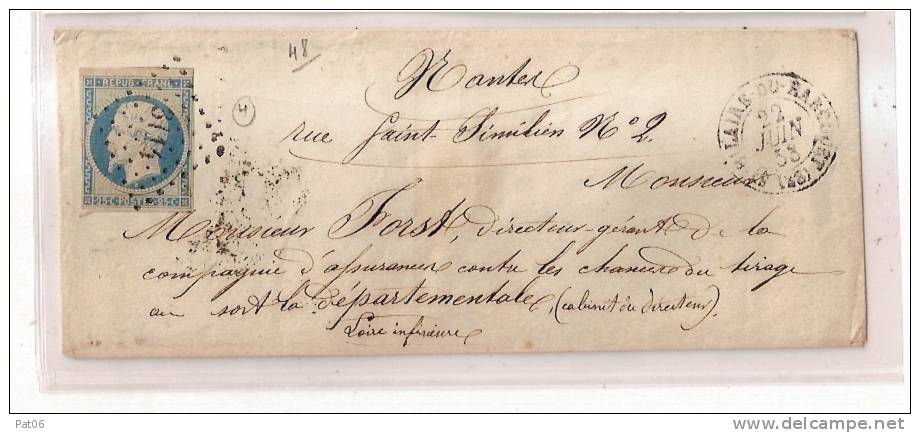 48
4
REPUB FRANC
25·C·POSTES·25·C
ST HILAIRE-DU-HARCOUET (48)
22
JUIN
53
Nantes
rue Saint Similien N° 2
Monsieur
Monsieur Forst, directeur-gérant de la
compagnie d'assurances contre les chances du tirage
au sort la Départementale, (cabinet du directeur)
Loire inférieure
Pat06
delcampe.net